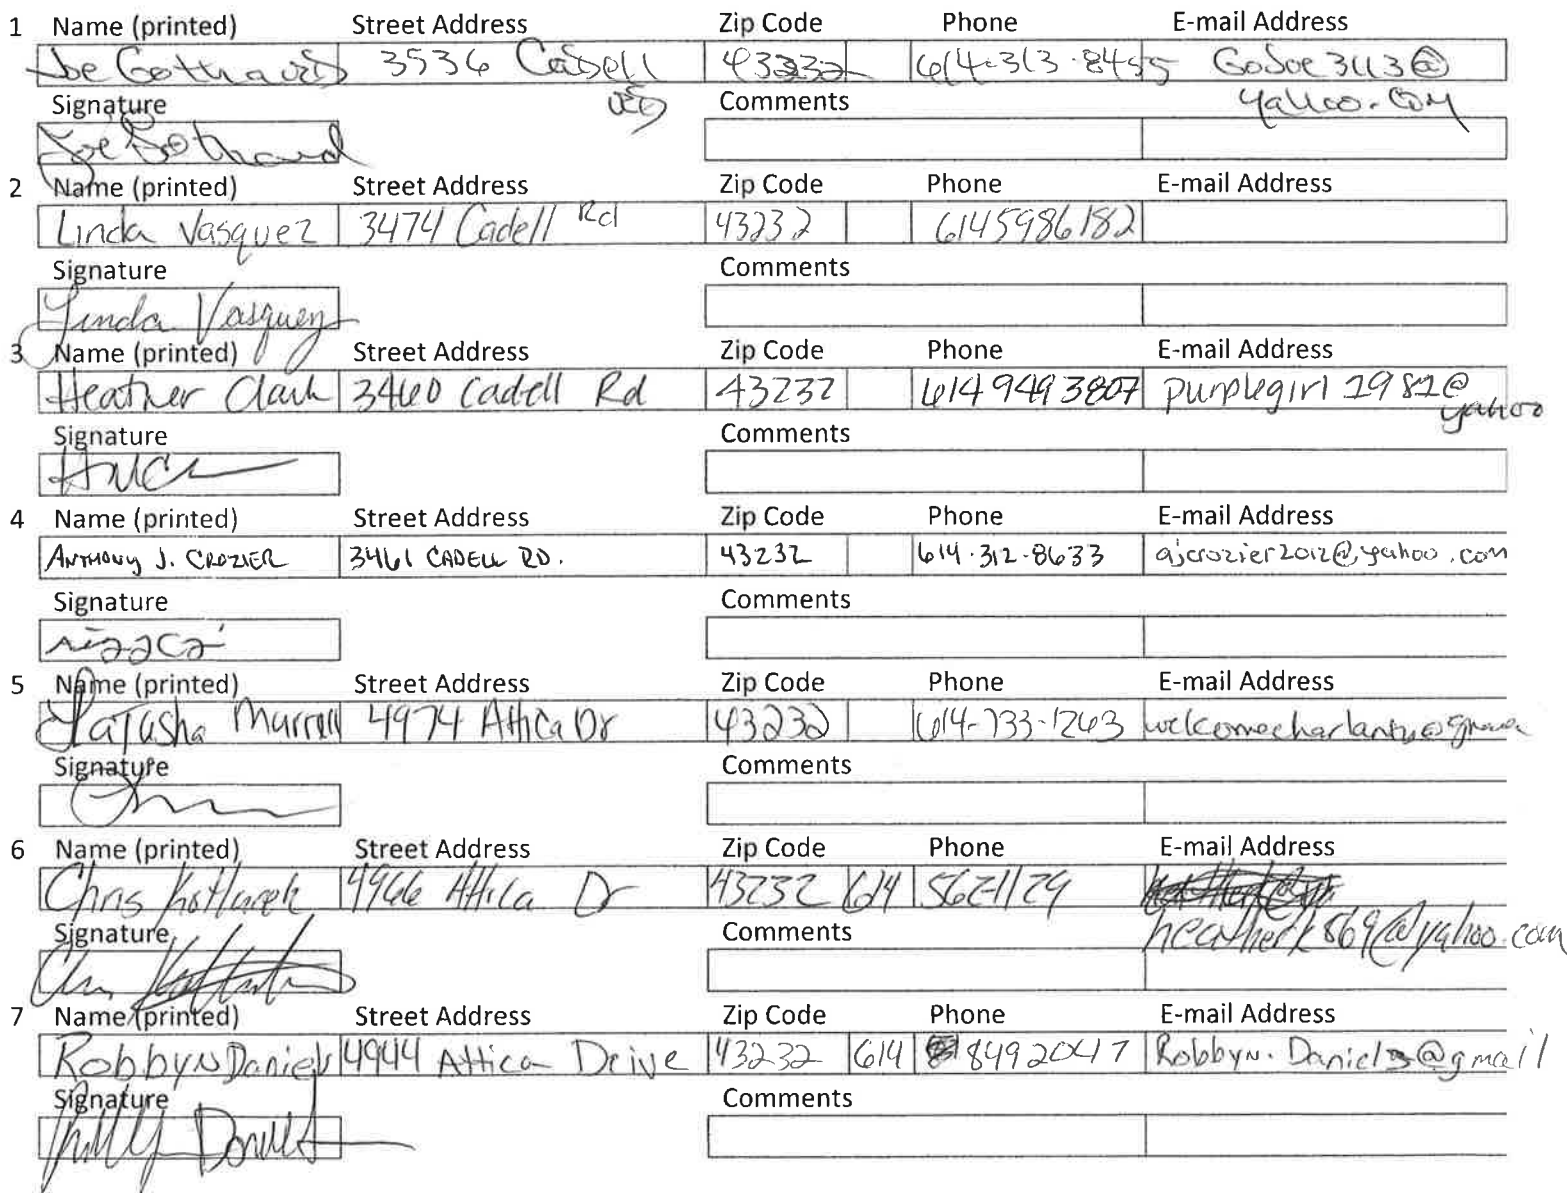 1 Name (printed) Street Address Zip Code Phone E-mail Address
Joe Gotthard 3536 Cadell 43232 614-313-8455 GoJoe3113@
Signature RD Comments yahoo.com
Joe Gothard
2 Name (printed) Street Address Zip Code Phone E-mail Address
Linda Vasquez 3474 Cadell Rd 43232 6145986182
Signature Comments
Linda Vasquez
3 Name (printed) Street Address Zip Code Phone E-mail Address
Heather Clark 3460 Cadell Rd 43232 6149493807 purplegirl1981@
yahoo
Signature Comments
4 Name (printed) Street Address Zip Code Phone E-mail Address
ANTHONY J. CROZIER 3461 CADELL RD. 43232 614-312-8633 ajcrozier2012@yahoo.com
Signature Comments
5 Name (printed) Street Address Zip Code Phone E-mail Address
LaTasha Murrell 4974 Attica Dr 43232 614-733-1263
Signature Comments
6 Name (printed) Street Address Zip Code Phone E-mail Address
Chris 4966 Attica Dr 43232 614 562-1129
Signature Comments heatherk569@yahoo.com
7 Name (printed) Street Address Zip Code Phone E-mail Address
Robbyn Daniels 4944 Attica Drive 43232 614 8492047 Robbyn.Daniels@gmail
Signature Comments